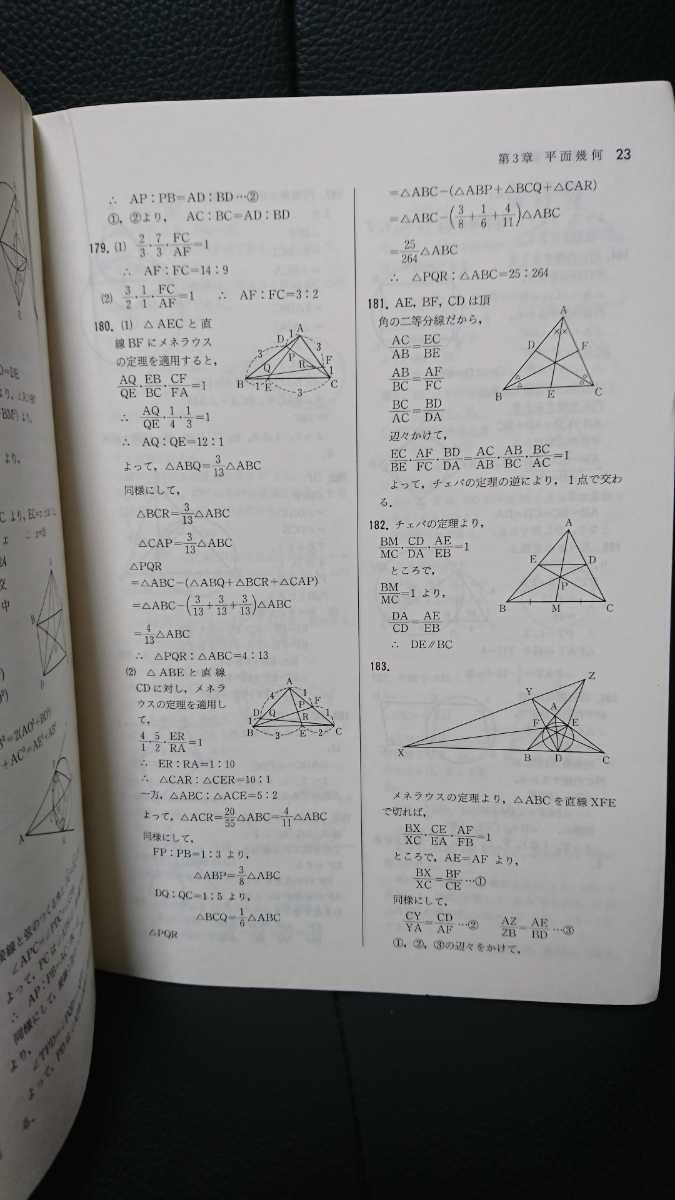 第3章 平面幾何 23
∴ AP:PB=AD:BD…②
①, ②より, AC:BC=AD:BD
179. (1) 2/3・7/3・FC/AF=1
∴ AF:FC=14:9
(2) 3/2・1/1・FC/AF=1 ∴ AF:FC=3:2
180. (1) △AEC と直
線 BF にメネラウス
の定理を適用すると,
AQ/QE・EB/BC・CF/FA=1
∴ AQ/QE・1/4・1/3=1
∴ AQ:QE=12:1
よって, △ABQ=3/13△ABC
同様にして,
△BCR=3/13△ABC
△CAP=3/13△ABC
△PQR
=△ABC-(△ABQ+△BCR+△CAP)
=△ABC-(3/13+3/13+3/13)△ABC
=4/13△ABC
∴ △PQR:△ABC=4:13
(2) △ABE と直線
CD に対し, メネラ
ウスの定理を適用し
て,
4/1・5/2・ER/RA=1
∴ ER:RA=1:10
∴ △CAR:△CER=10:1
一方, △ABC:△ACE=5:2
よって, △ACR=20/55△ABC=4/11△ABC
同様にして,
FP:PB=1:3 より,
△ABP=3/8△ABC
DQ:QC=1:5 より,
△BCQ=1/6△ABC
△PQR
=△ABC-(△ABP+△BCQ+△CAR)
=△ABC-(3/8+1/6+4/11)△ABC
=25/264△ABC
∴ △PQR:△ABC=25:264
181. AE, BF, CD は頂
角の二等分線だから,
AC/AB=EC/BE
AB/BC=AF/FC
BC/AC=BD/DA
辺々かけて,
EC/BE・AF/FC・BD/DA=AC/AB・AB/BC・BC/AC=1
よって, チェバの定理の逆により, 1点で交わ
る.
182. チェバの定理より,
BM/MC・CD/DA・AE/EB=1
ところで,
BM/MC=1 より,
DA/CD=AE/EB
∴ DE∥BC
183.
メネラウスの定理より, △ABC を直線 XFE
で切れば,
BX/XC・CE/EA・AF/FB=1
ところで, AE=AF より,
BX/XC=BF/CE…①
同様にして,
CY/YA=CD/AF…② AZ/ZB=AE/BD…③
①, ②, ③の辺々をかけて,